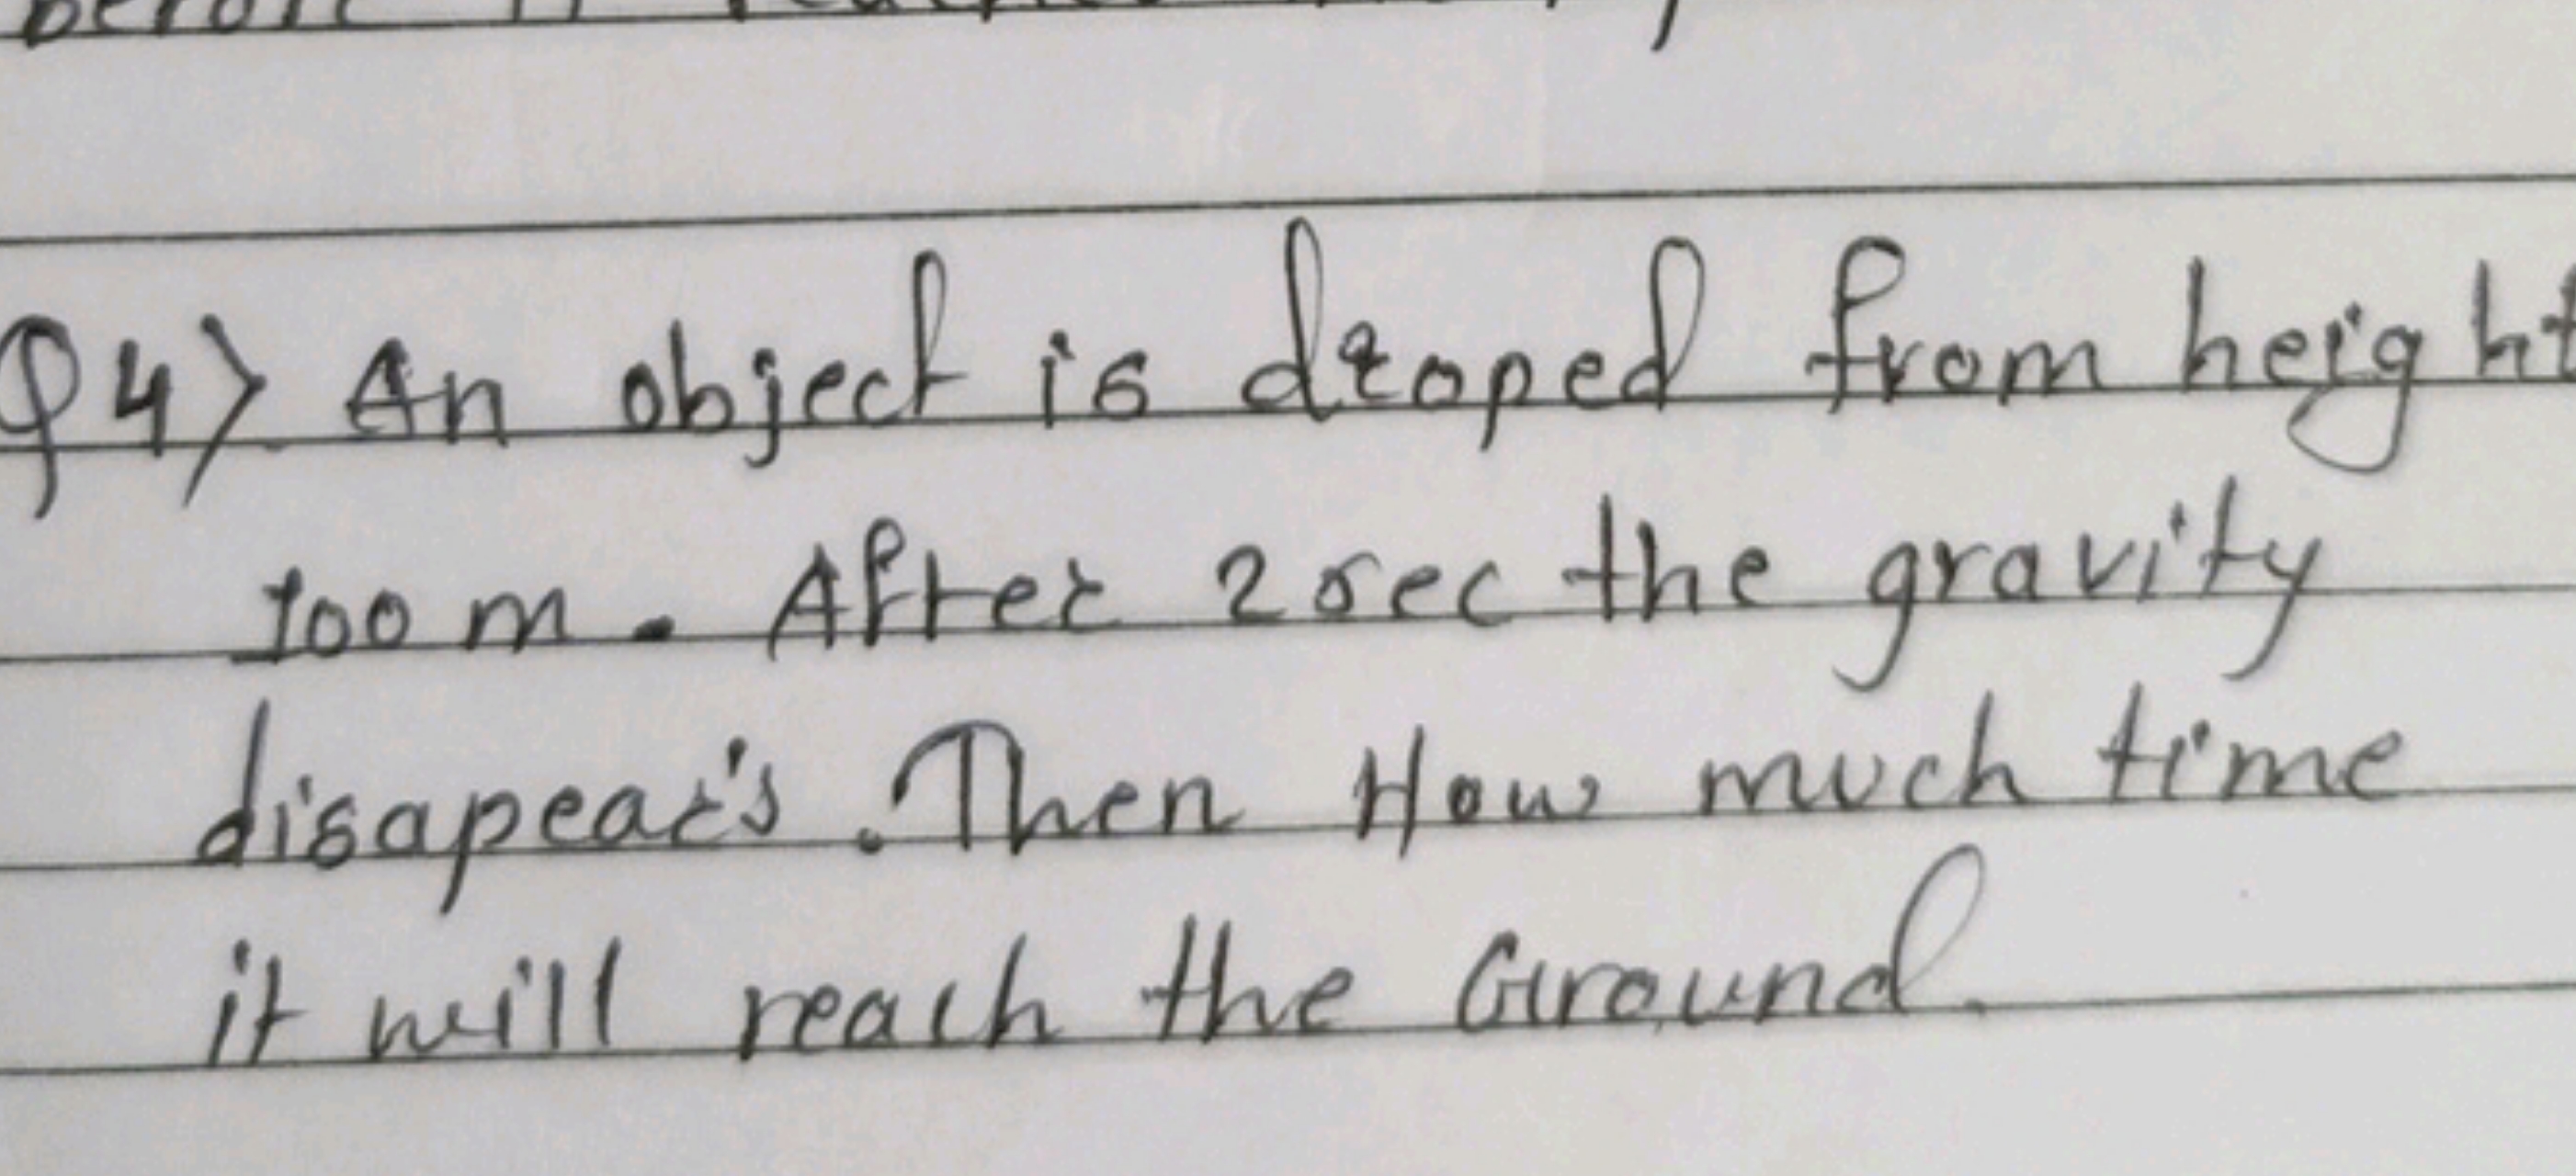 Q4> An object is droped from height
100 m. After 2 sec the gravity
disapear's. Then How much time
it will reach the Ground.